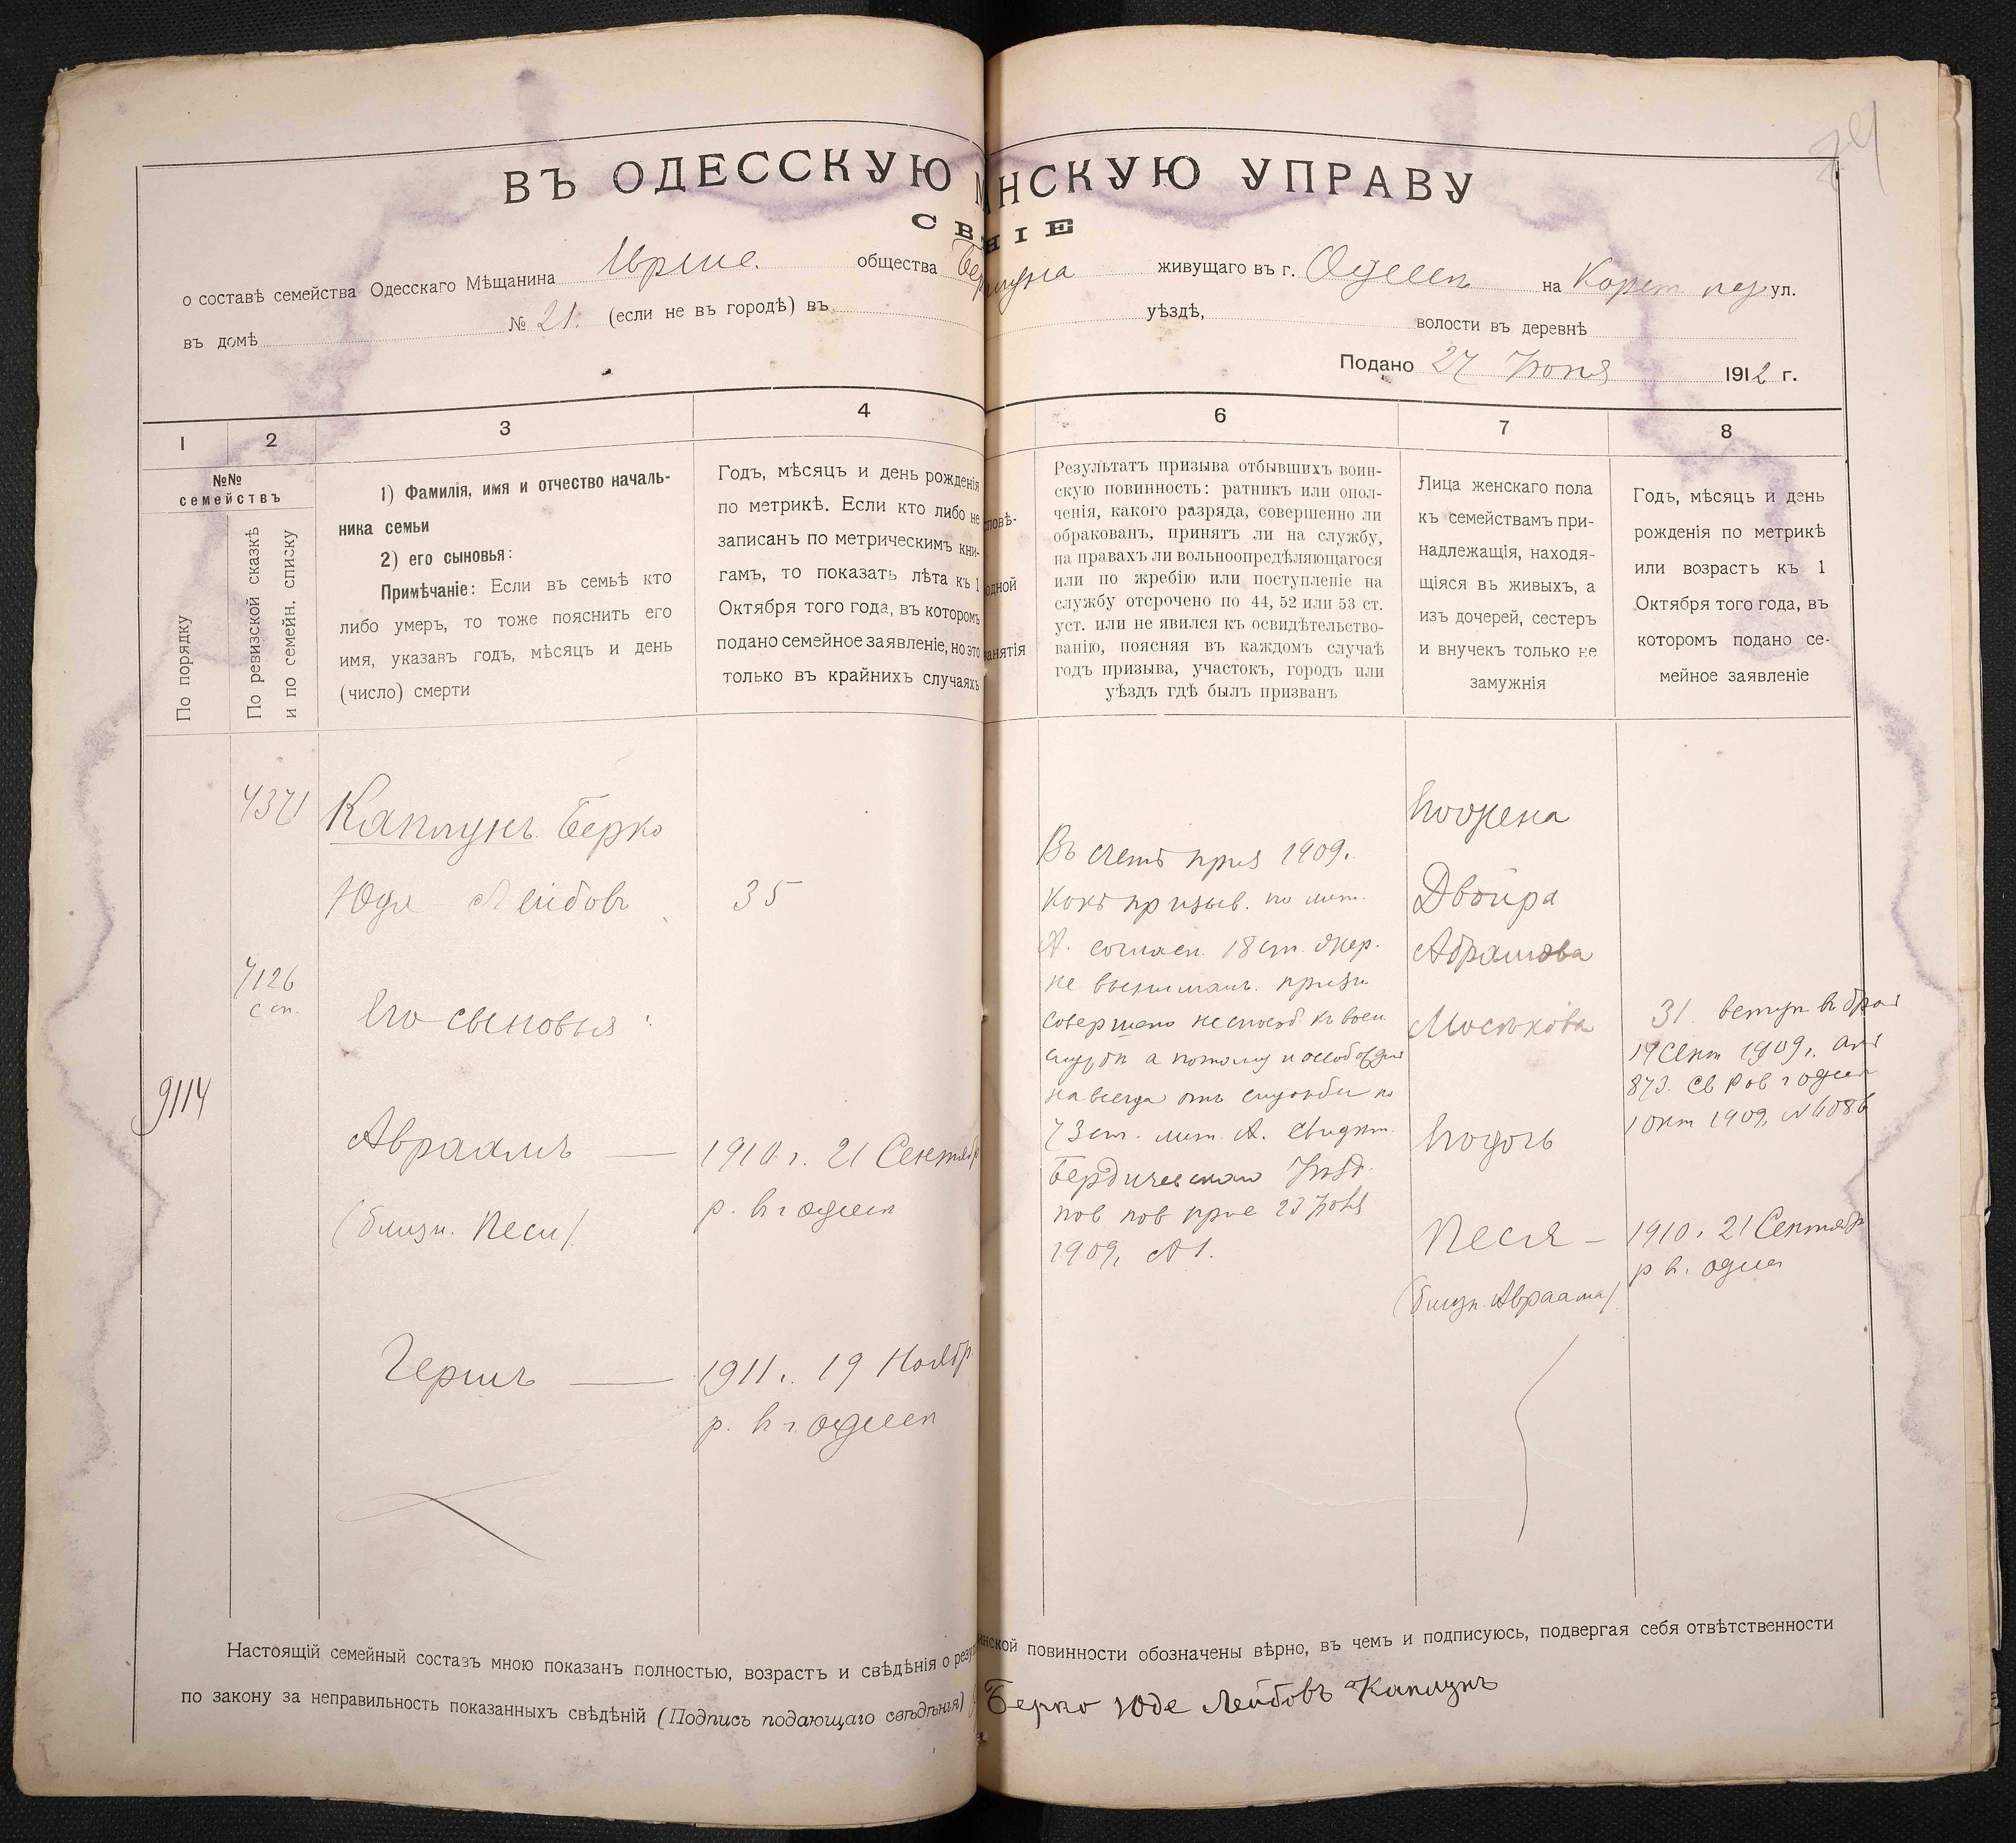 ВЪ ОДЕССКУЮ НСКУЮ УПРАВУ
СВ НІЕ
о составѣ семейства Одесскаго Мѣщанина общества живущаго въ г. Одессѣ на ул.
въ домѣ № 21. (если не въ городѣ) въ уѣздѣ, волости въ деревнѣ
Подано 27 Іюня 1912 г.
1 2 3 4 6 7 8
№№
семействъ
По порядку
По ревизской сказкѣ
и по семейн. списку
1) Фамилія, имя и отчество началь-
ника семьи
2) его сыновья:
Примѣчаніе: Если въ семьѣ кто
либо умеръ, то тоже пояснить его
имя, указавъ годъ, мѣсяцъ и день
(число) смерти
Годъ, мѣсяцъ и день рожденія
по метрикѣ. Если кто либо не
записанъ по метрическимъ кни-
гамъ, то показать лѣта къ 1
Октября того года, въ которомъ
подано семейное заявленіе, но это
только въ крайнихъ случаяхъ
повѣ-
одной
занятія
Результатъ призыва отбывшихъ воин-
скую повинность: ратникъ или опол-
ченія, какого разряда, совершенно ли
обракованъ, принятъ ли на службу,
на правахъ ли вольноопредѣляющагося
или по жребію или поступленіе на
службу отсрочено по 44, 52 или 53 ст.
уст. или не явился къ освидѣтельство-
ванію, поясняя въ каждомъ случаѣ
годъ призыва, участокъ, городъ или
уѣздъ гдѣ былъ призванъ
Лица женскаго пола
къ семействамъ при-
надлежащія, находя-
щіяся въ живыхъ, а
изъ дочерей, сестеръ
и внучекъ только не
замужнія
Годъ, мѣсяцъ и день
рожденія по метрикѣ
или возрастъ къ 1
Октября того года, въ
которомъ подано се-
мейное заявленіе
Каплунъ Берко
Юдя Лейбовъ 35
7126
с сп.
Его сыновья:
9114
Авраамъ — 1910 г. 21 Сентябр
(близн. Песи) р. в г Одессѣ
Гершъ — 1911 г. 19 Ноябр
р. в г Одессѣ
1909 г.
призыв. по лит.
А. согласн. 18 ст.
совершено неспособ къ воен
службѣ а потому и освобожден
навсегда отъ службы по
73 ст. лит. А. Свидѣт.
Бердичевскаго Уѣзд.
по воин пов прис 23 Іюня
1909 г.
Его жена
Двойра
Абрамова
Моськова
31. вступ въ брак
14 Сент 1909 г.
873.
1 Окт 1909 г. №
Его дочь
Песя — 1910 г. 21 Сентябр
(близн. Авраама) р в г. Одес
Настоящій семейный составъ мною показанъ полностью, возрастъ и свѣдѣнія о резу инской повинности обозначены вѣрно, въ чемъ и подписуюсь, подвергая себя отвѣтственности
по закону за неправильность показанныхъ свѣдѣній (Подпись подающаго свѣдѣнія) Берко Юде Лейбовъ Каплунъ